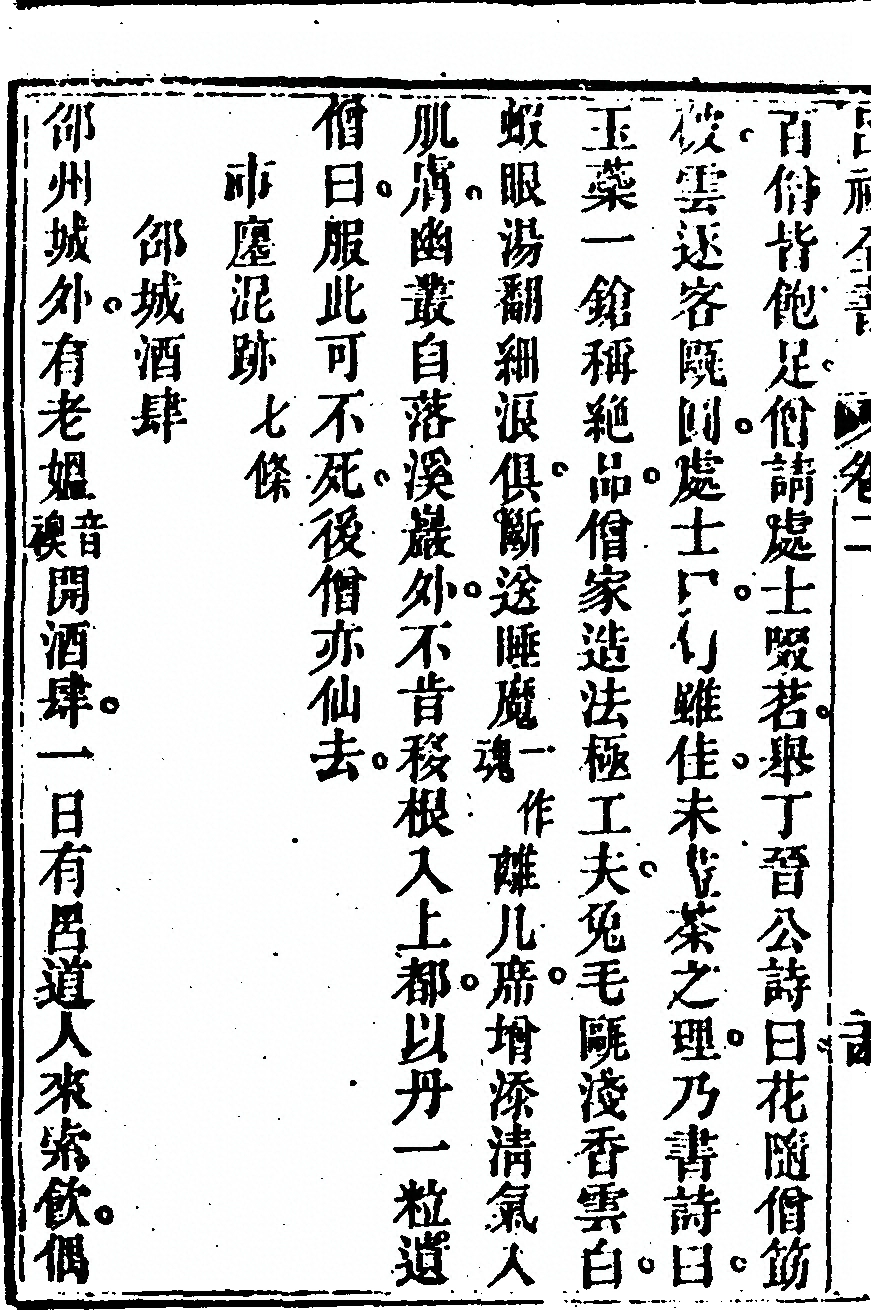 呂祖全書 卷二
百僧皆飽足僧請處士啜茗舉丁晉公詩曰花隨僧筯
破雲逐客甌圓處士曰句雖佳未盡茶之理乃書詩曰
玉蘂一鎗稱絶品僧家造法極工夫兔毛甌淺香雲白
蝦眼湯翻細浪俱斷送睡魔一作魂離几席增添淸氣入
肌膚幽叢自落溪巖外不肯移根入上都以丹一粒遺
僧曰服此可不死後僧亦仙去
市廛泥跡七條
邵城酒肆
邵州城外有老媼音襖開酒肆一日有呂道人來索飲偶